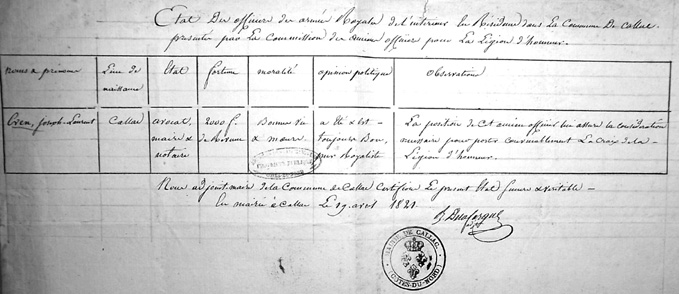 Etat Des officiers des armées Royales de l'intérieur en Résidence dans La Commune De Callac
présenté par La Commission des anciens officiers pour La Légion d'honneur.
noms & prénoms
Lieu de naissance
Etat
fortune
moralité
opinion politique
observations
Joseph-Laurent
Callac
avocat,
maire &
notaire
2000 f.
de Revenu
Bonne vie
& mœurs
a été & est
toujours Bon,
pur Royaliste
La position de Cet ancien officier lui assure la considération
nécessaire pour porter convenablement La Croix de la
Légion d'honneur.
Nous adjoint maire de la Commune de Callac Certifions Le présent Etat sincère & véritable
En mairie à Callac Le 19 avril 1821.
MAIRIE DE CALLAC
(COTES-DU-NORD)